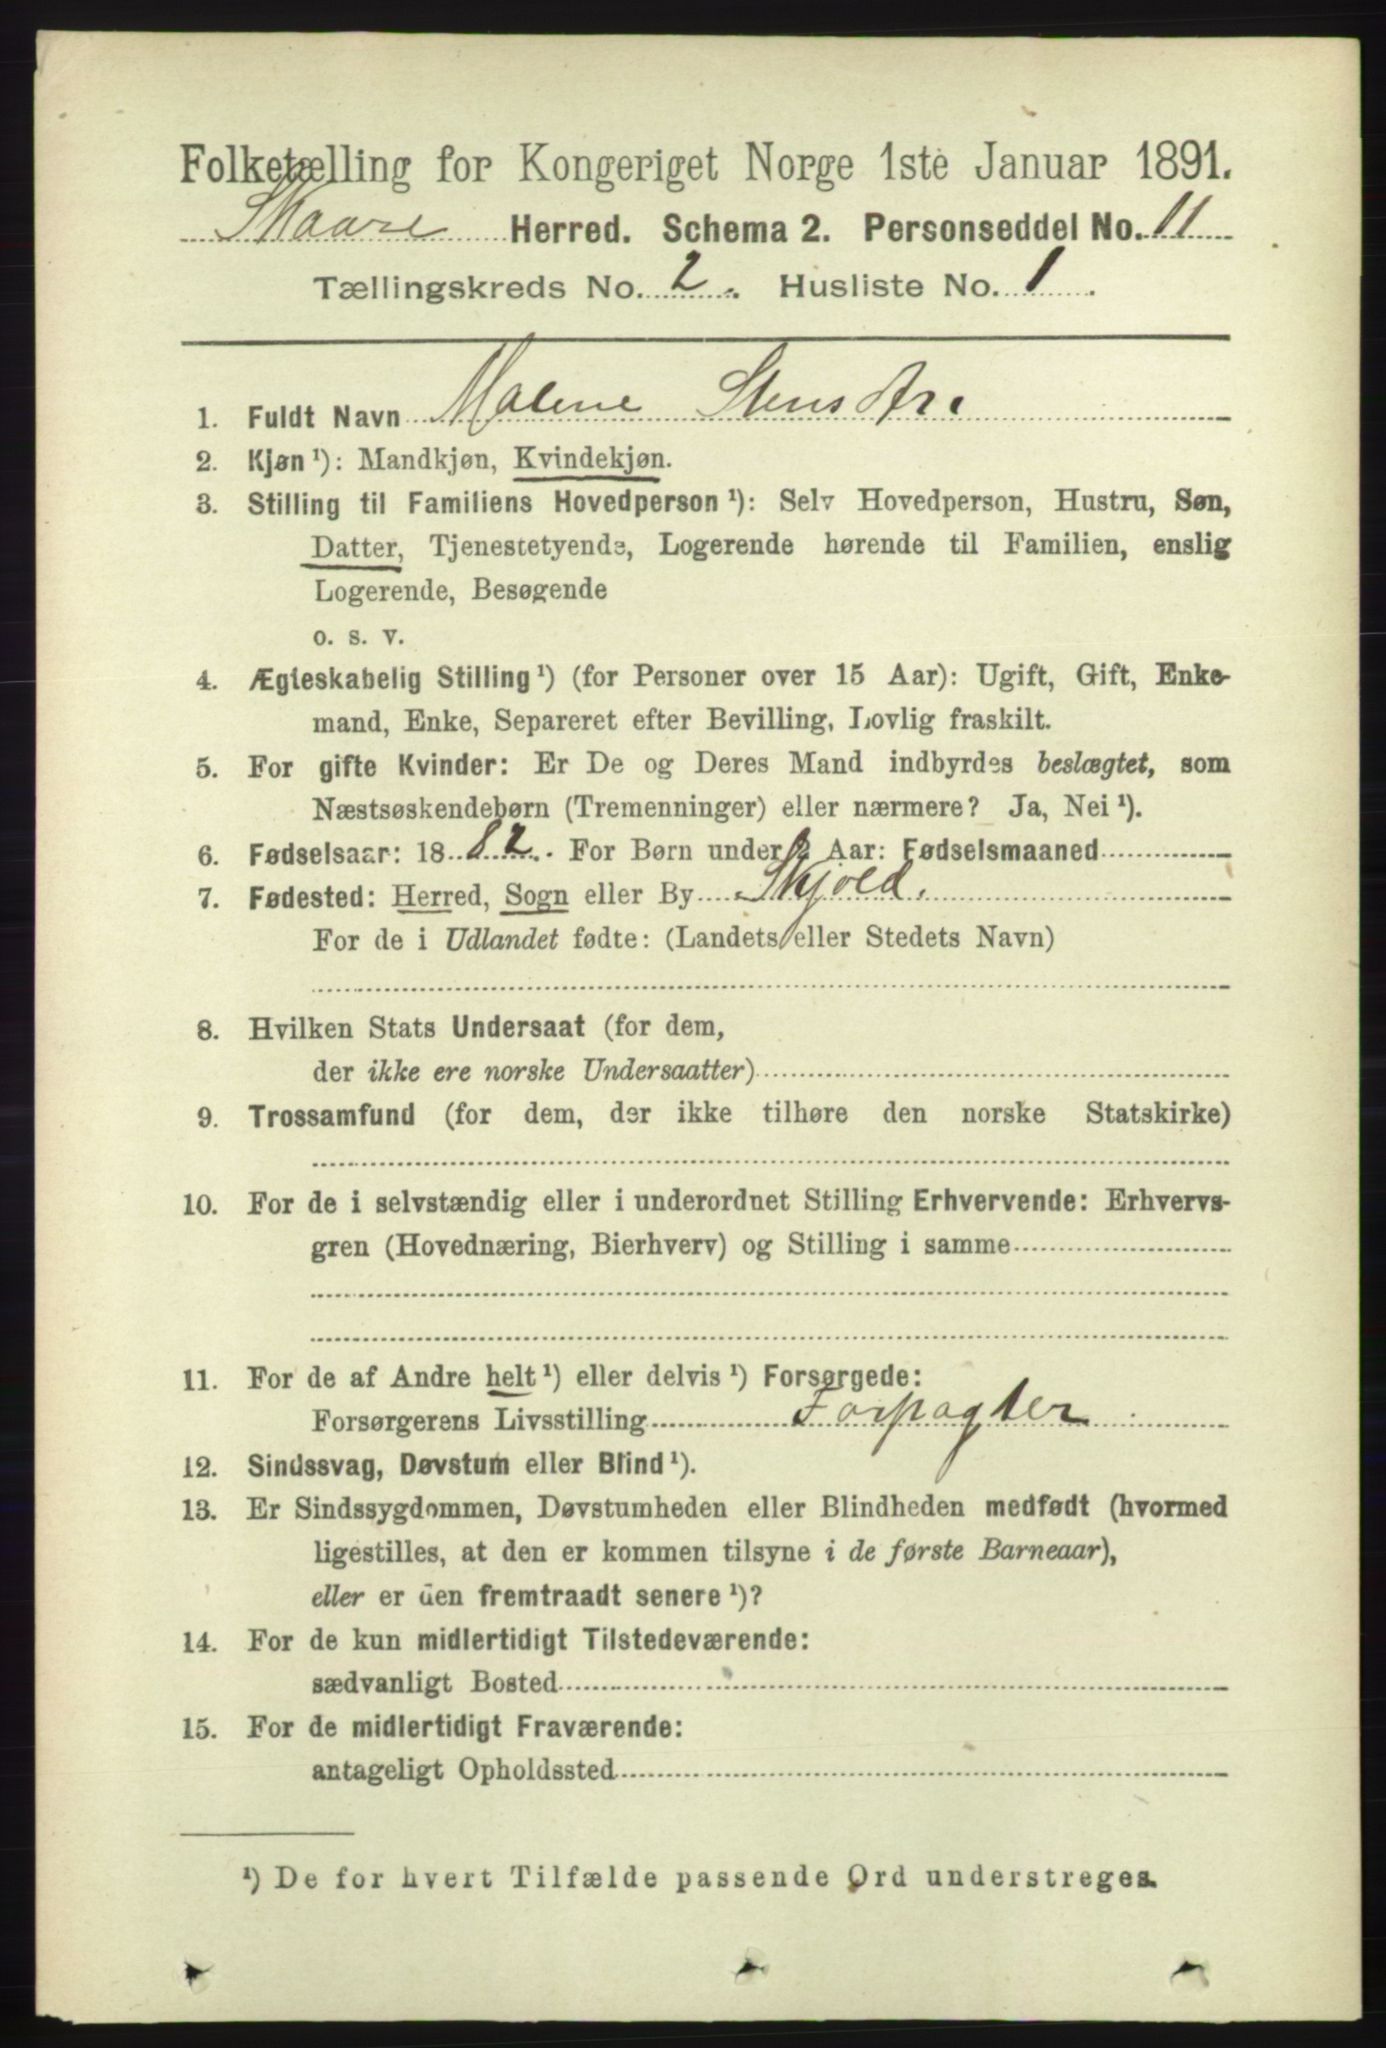 Folketælling for Kongeriget Norge 1ste Januar 1891.
Skaare Herred. Schema 2. Personseddel No. 11
Tællingskreds No. 2. Husliste No. 1.
1. Fuldt Navn Malene
2. Kjøn ¹): Mandkjøn, Kvindekjøn.
3. Stilling til Familiens Hovedperson ¹): Selv Hovedperson, Hustru, Søn,
Datter, Tjenestetyende, Logerende hørende til Familien, enslig
Logerende, Besøgende
o. s. v.
4. Ægteskabelig Stilling ¹) (for Personer over 15 Aar): Ugift, Gift, Enke-
mand, Enke, Separeret efter Bevilling, Lovlig fraskilt.
5. For gifte Kvinder: Er De og Deres Mand indbyrdes beslægtet, som
Næstsøskendebørn (Tremenninger) eller nærmere? Ja, Nei ¹).
6. Fødselsaar: 1882. For Børn under 2 Aar: Fødselsmaaned
7. Fødested: Herred, Sogn eller By Skjold.
For de i Udlandet fødte: (Landets eller Stedets Navn)
8. Hvilken Stats Undersaat (for dem,
der ikke ere norske Undersaatter)
9. Trossamfund (for dem, der ikke tilhøre den norske Statskirke)
10. For de i selvstændig eller i underordnet Stilling Erhvervende: Erhvervs-
gren (Hovednæring, Bierhverv) og Stilling i samme
11. For de af Andre helt ¹) eller delvis ¹) Forsørgede:
Forsørgerens Livsstilling Forpagter
12. Sindssvag, Døvstum eller Blind ¹).
13. Er Sindssygdommen, Døvstumheden eller Blindheden medfødt (hvormed
ligestilles, at den er kommen tilsyne i de første Barneaar),
eller er den fremtraadt senere ¹)?
14. For de kun midlertidigt Tilstedeværende:
sædvanligt Bosted
15. For de midlertidigt Fraværende:
antageligt Opholdssted
¹) De for hvert Tilfælde passende Ord understreges.